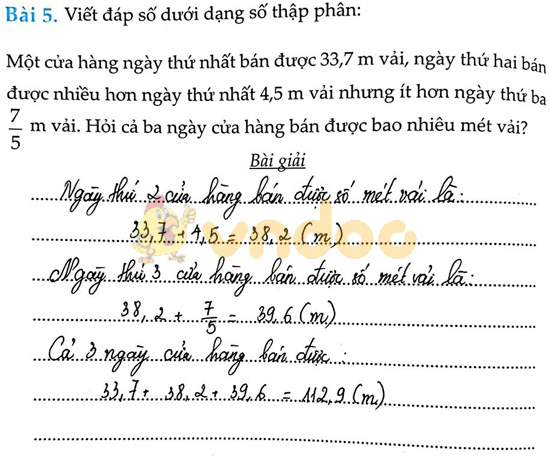 Bài 5. Viết đáp số dưới dạng số thập phân:
Một cửa hàng ngày thứ nhất bán được 33,7 m vải, ngày thứ hai bán
được nhiều hơn ngày thứ nhất 4,5 m vải nhưng ít hơn ngày thứ ba
7/5 m vải. Hỏi cả ba ngày cửa hàng bán được bao nhiêu mét vải?
Bài giải
Ngày thứ 2 cửa hàng bán được số mét vải là:
33,7 + 4,5 = 38,2 (m)
Ngày thứ 3 cửa hàng bán được số mét vải là:
38,2 + 7/5 = 39,6 (m)
Cả 3 ngày cửa hàng bán được:
33,7 + 38,2 + 39,6 = 112,9 (m)
vndoc